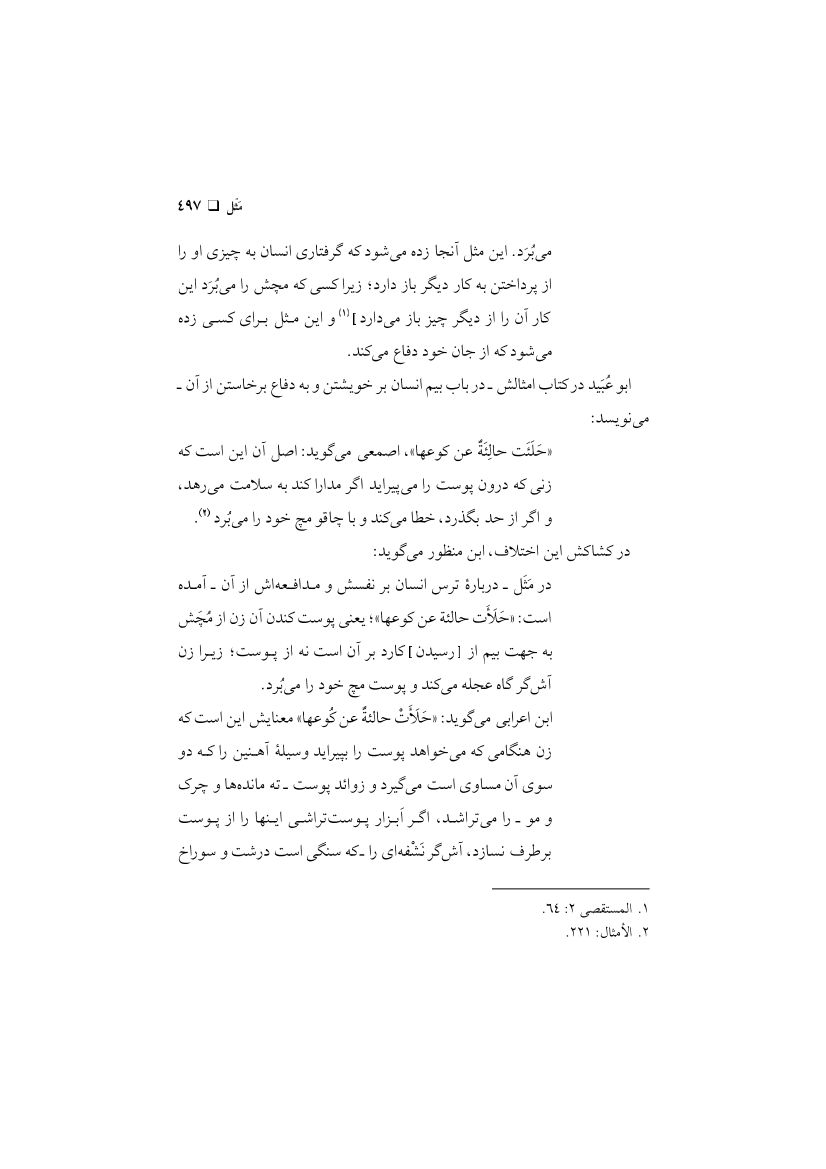 مَثَل ❑ ٤٩٧
می‌بُرَد. این مثل آنجا زده می‌شود که گرفتاری انسان به چیزی او را
از پرداختن به کار دیگر باز دارد؛ زیرا کسی که مچش را می‌بُرَد این
کار آن را از دیگر چیز باز می‌دارد](۱) و این مـثل بـرای کسـی زده
می‌شود که از جان خود دفاع می‌کند.
ابو عُبَید در کتاب امثالش ـ در باب بیم انسان بر خویشتن و به دفاع برخاستن از آن ـ
می‌نویسد:
«حَلَئَت حالِئَةٌ عن کوعها»، اصمعی می‌گوید: اصل آن این است که
زنی که درون پوست را می‌پیراید اگر مدارا کند به سلامت می‌رهد،
و اگر از حد بگذرد، خطا می‌کند و با چاقو مچ خود را می‌بُرد (۲).
در کشاکش این اختلاف، ابن منظور می‌گوید:
در مَثَل ـ دربارهٔ ترس انسان بر نفسش و مـدافـعه‌اش از آن ـ آمـده
است: «حَلَأَت حالئة عن کوعها»؛ یعنی پوست کندن آن زن از مُچَش
به جهت بیم از [رسیدن] کارد بر آن است نه از پـوست؛ زیـرا زن
آش‌گر گاه عجله می‌کند و پوست مچ خود را می‌بُرد.
ابن اعرابی می‌گوید: «حَلَأَتْ حالئةٌ عن کُوعها» معنایش این است که
زن هنگامی که می‌خواهد پوست را بپیراید وسیلهٔ آهـنین را کـه دو
سوی آن مساوی است می‌گیرد و زوائد پوست ـ ته مانده‌ها و چرک
و مو ـ را می‌تراشـد، اگـر اَبـزار پـوست‌تراشـی ایـنها را از پـوست
برطرف نسازد، آش‌گر نَشْفه‌ای را ـ که سنگی است درشت و سوراخ
۱. المستقصی ۲: ٦٤.
۲. الأمثال: ۲۲۱.